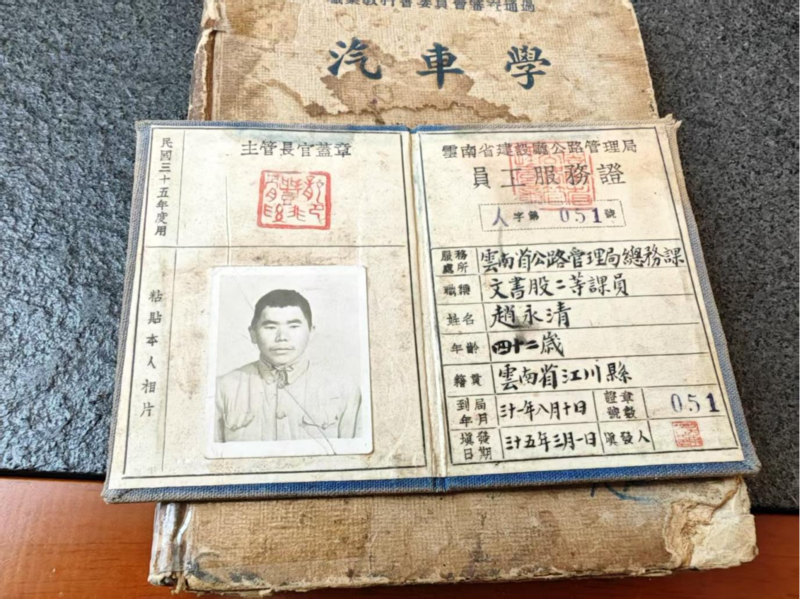 職業教科書委員會審查通過
汽車學
民國三十五年度用
主管長官蓋章
粘貼本人相片
雲南省建設廳公路管理局
員工服務證
人字第051號
服務處所 雲南省公路管理局總務課
職謂 文書股二等課員
姓名 趙永清
年齡 四十二歲
籍貫 雲南省江川縣
到局年月 三十一年八月十日 證章號數 051
填發日期 三十五年三月一日 填發人